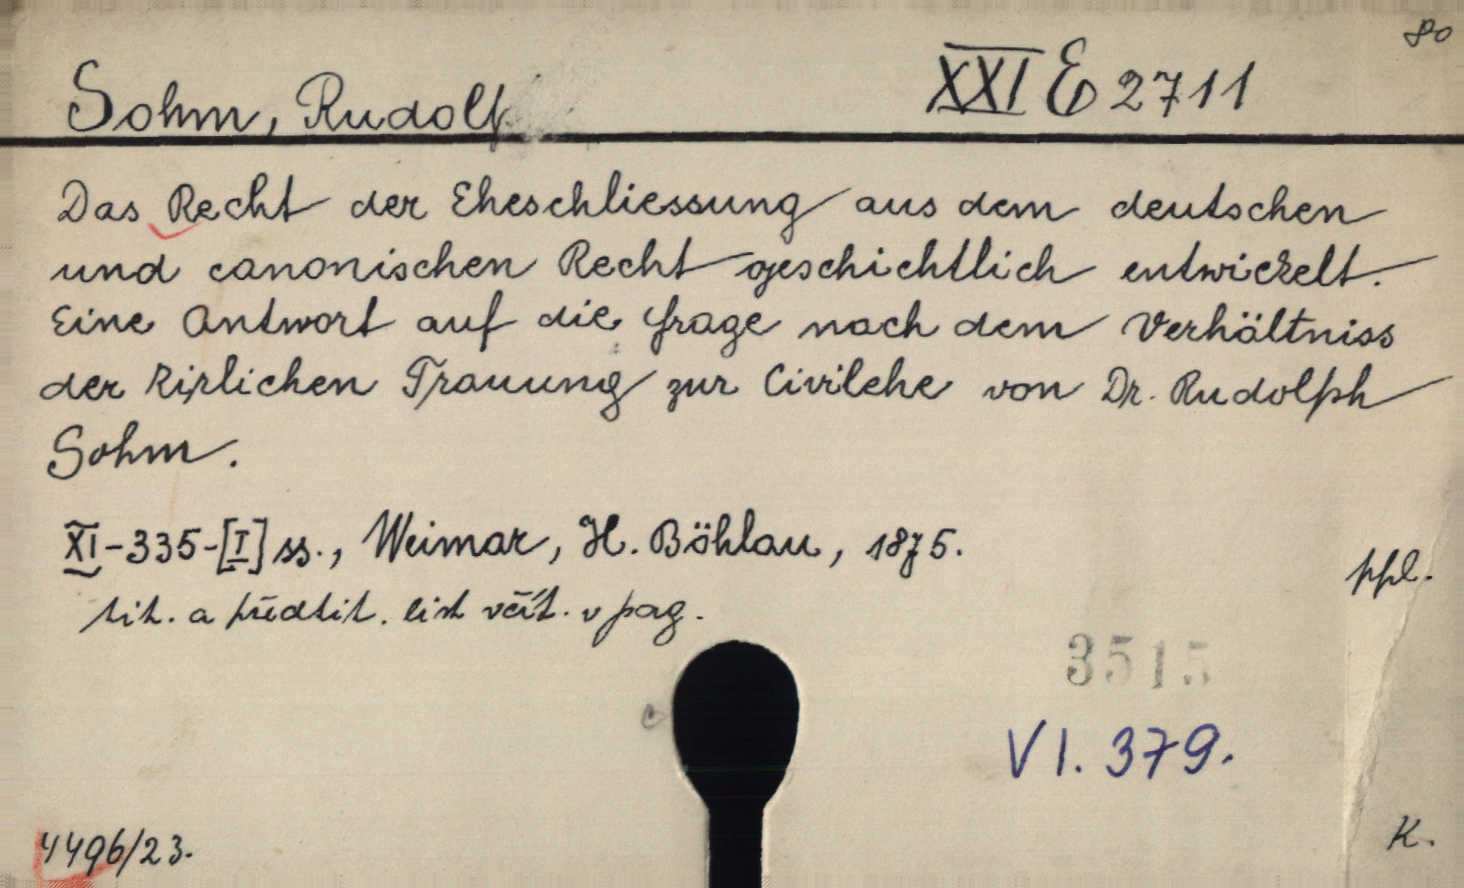 80
Sohm, Rudolf
XXI E 2711
Das Recht der Eheschliessung aus dem deutschen
und canonischen Recht geschichtlich entwickelt.
Eine Antwort auf die Frage nach dem Verhältniss
der kirlichen Trauung zur Civilehe von Dr. Rudolph
Sohm.
XI-335-[I] ss., Weimar, H. Böhlau, 1875.
ppl.
tit. a předtit. list včít. v pag.
3515
VI. 379.
4496/23.
K.